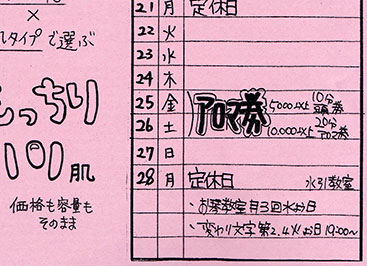 ×
タイプで選ぶ
っちり
肌
価格も容量も
そのまま
21 月 定休日
22 火
23 水
24 木
25 金 アロマ券 5000以上 10分
26 土 10.000以上 20分
27 日
28 月 定休日 水引教室
・お琴教室 月3回水お日
・変わり文字 第2.4火お日 19:00〜